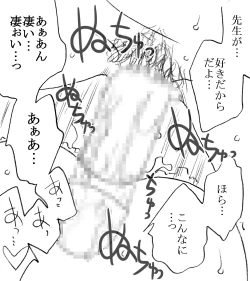 先生が…
好きだから
だよ…
ぬちゅっ
ぬちゅっ
あぁあん
凄い…
凄ぉい…っ
あぁあ…
ぬちゅっ
ほら…
こんなに
…っ
ぬちゅっ
ぬちゅっ
あっ
あっ
あっ…